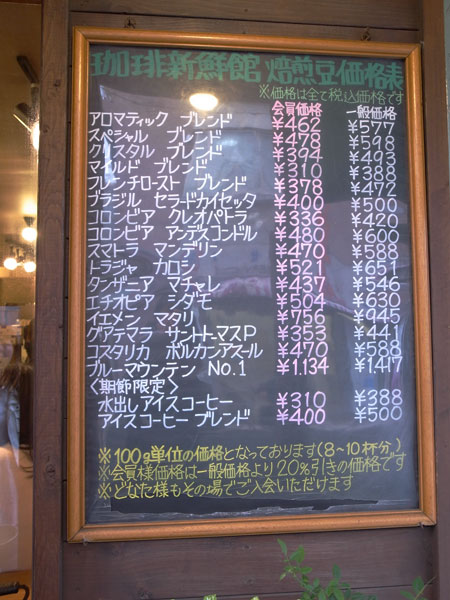 珈琲新鮮館 焙煎豆価格表
※価格は全て税込価格です
会員価格 一般価格
アロマティック ブレンド ¥462 ¥577
スペシャル ブレンド ¥478 ¥598
クリスタル ブレンド ¥394 ¥493
マイルド ブレンド ¥310 ¥388
フレンチロースト ブレンド ¥378 ¥472
ブラジル セラードカイセッタ ¥400 ¥500
コロンビア クレオパトラ ¥336 ¥420
コロンビア アンデスコンドル ¥480 ¥600
スマトラ マンデリン ¥470 ¥588
トラジャ カロシ ¥521 ¥651
タンザニア マチャレ ¥437 ¥546
エチオピア シダモ ¥504 ¥630
イエメン マタリ ¥756 ¥945
グアテマラ サントトーマスP ¥353 ¥441
コスタリカ ボルカンアスール ¥470 ¥588
ブルーマウンテン No.1 ¥1.134 ¥1417
〈期節限定〉
水出しアイスコーヒー ¥310 ¥388
アイスコーヒーブレンド ¥400 ¥500
※100g単位の価格となっております(8~10杯分)
※会員様価格は一般価格より20%引きの価格です
※どなた様もその場でご入会いただけます